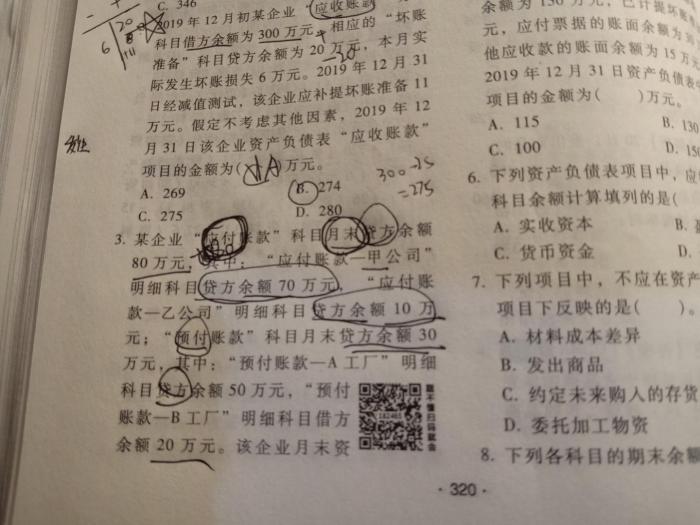 C. 346
2019 年 12 月初某企业 "应收账款"
科目借方余额为 300 万元，相应的 "坏账
准备" 科目贷方余额为 20 万元，本月实
际发生坏账损失 6 万元。2019 年 12 月 31
日经减值测试，该企业应补提坏账准备 11
万元。假定不考虑其他因素，2019 年 12
月 31 日该企业资产负债表 "应收账款"
项目的金额为( )万元。
A. 269
B. 274
C. 275
D. 280
300-25
=275
3. 某企业 "应付账款" 科目月末贷方余额
80 万元，其中："应付账款—甲公司"
明细科目贷方余额 70 万元，"应付账
款—乙公司" 明细科目贷方余额 10 万
元；"预付账款" 科目月末贷方余额 30
万元，其中："预付账款—A 工厂" 明细
科目贷方余额 50 万元，"预付
账款—B 工厂" 明细科目借方
余额 20 万元。该企业月末资
题不懂扫码就会
182465
元，应付票据的账面余额为
他应收款的账面余额为 15 万
2019 年 12 月 31 日资产负债表
项目的金额为( )万元。
A. 115
B. 130
C. 100
D.
6. 下列资产负债表项目中，应
科目余额计算填列的是(
A. 实收资本
B.
C. 货币资金
D.
7. 下列项目中，不应在资产
项目下反映的是( )。
A. 材料成本差异
B. 发出商品
C. 约定未来购入的存货
D. 委托加工物资
8. 下列各科目的期末余额
· 320 ·